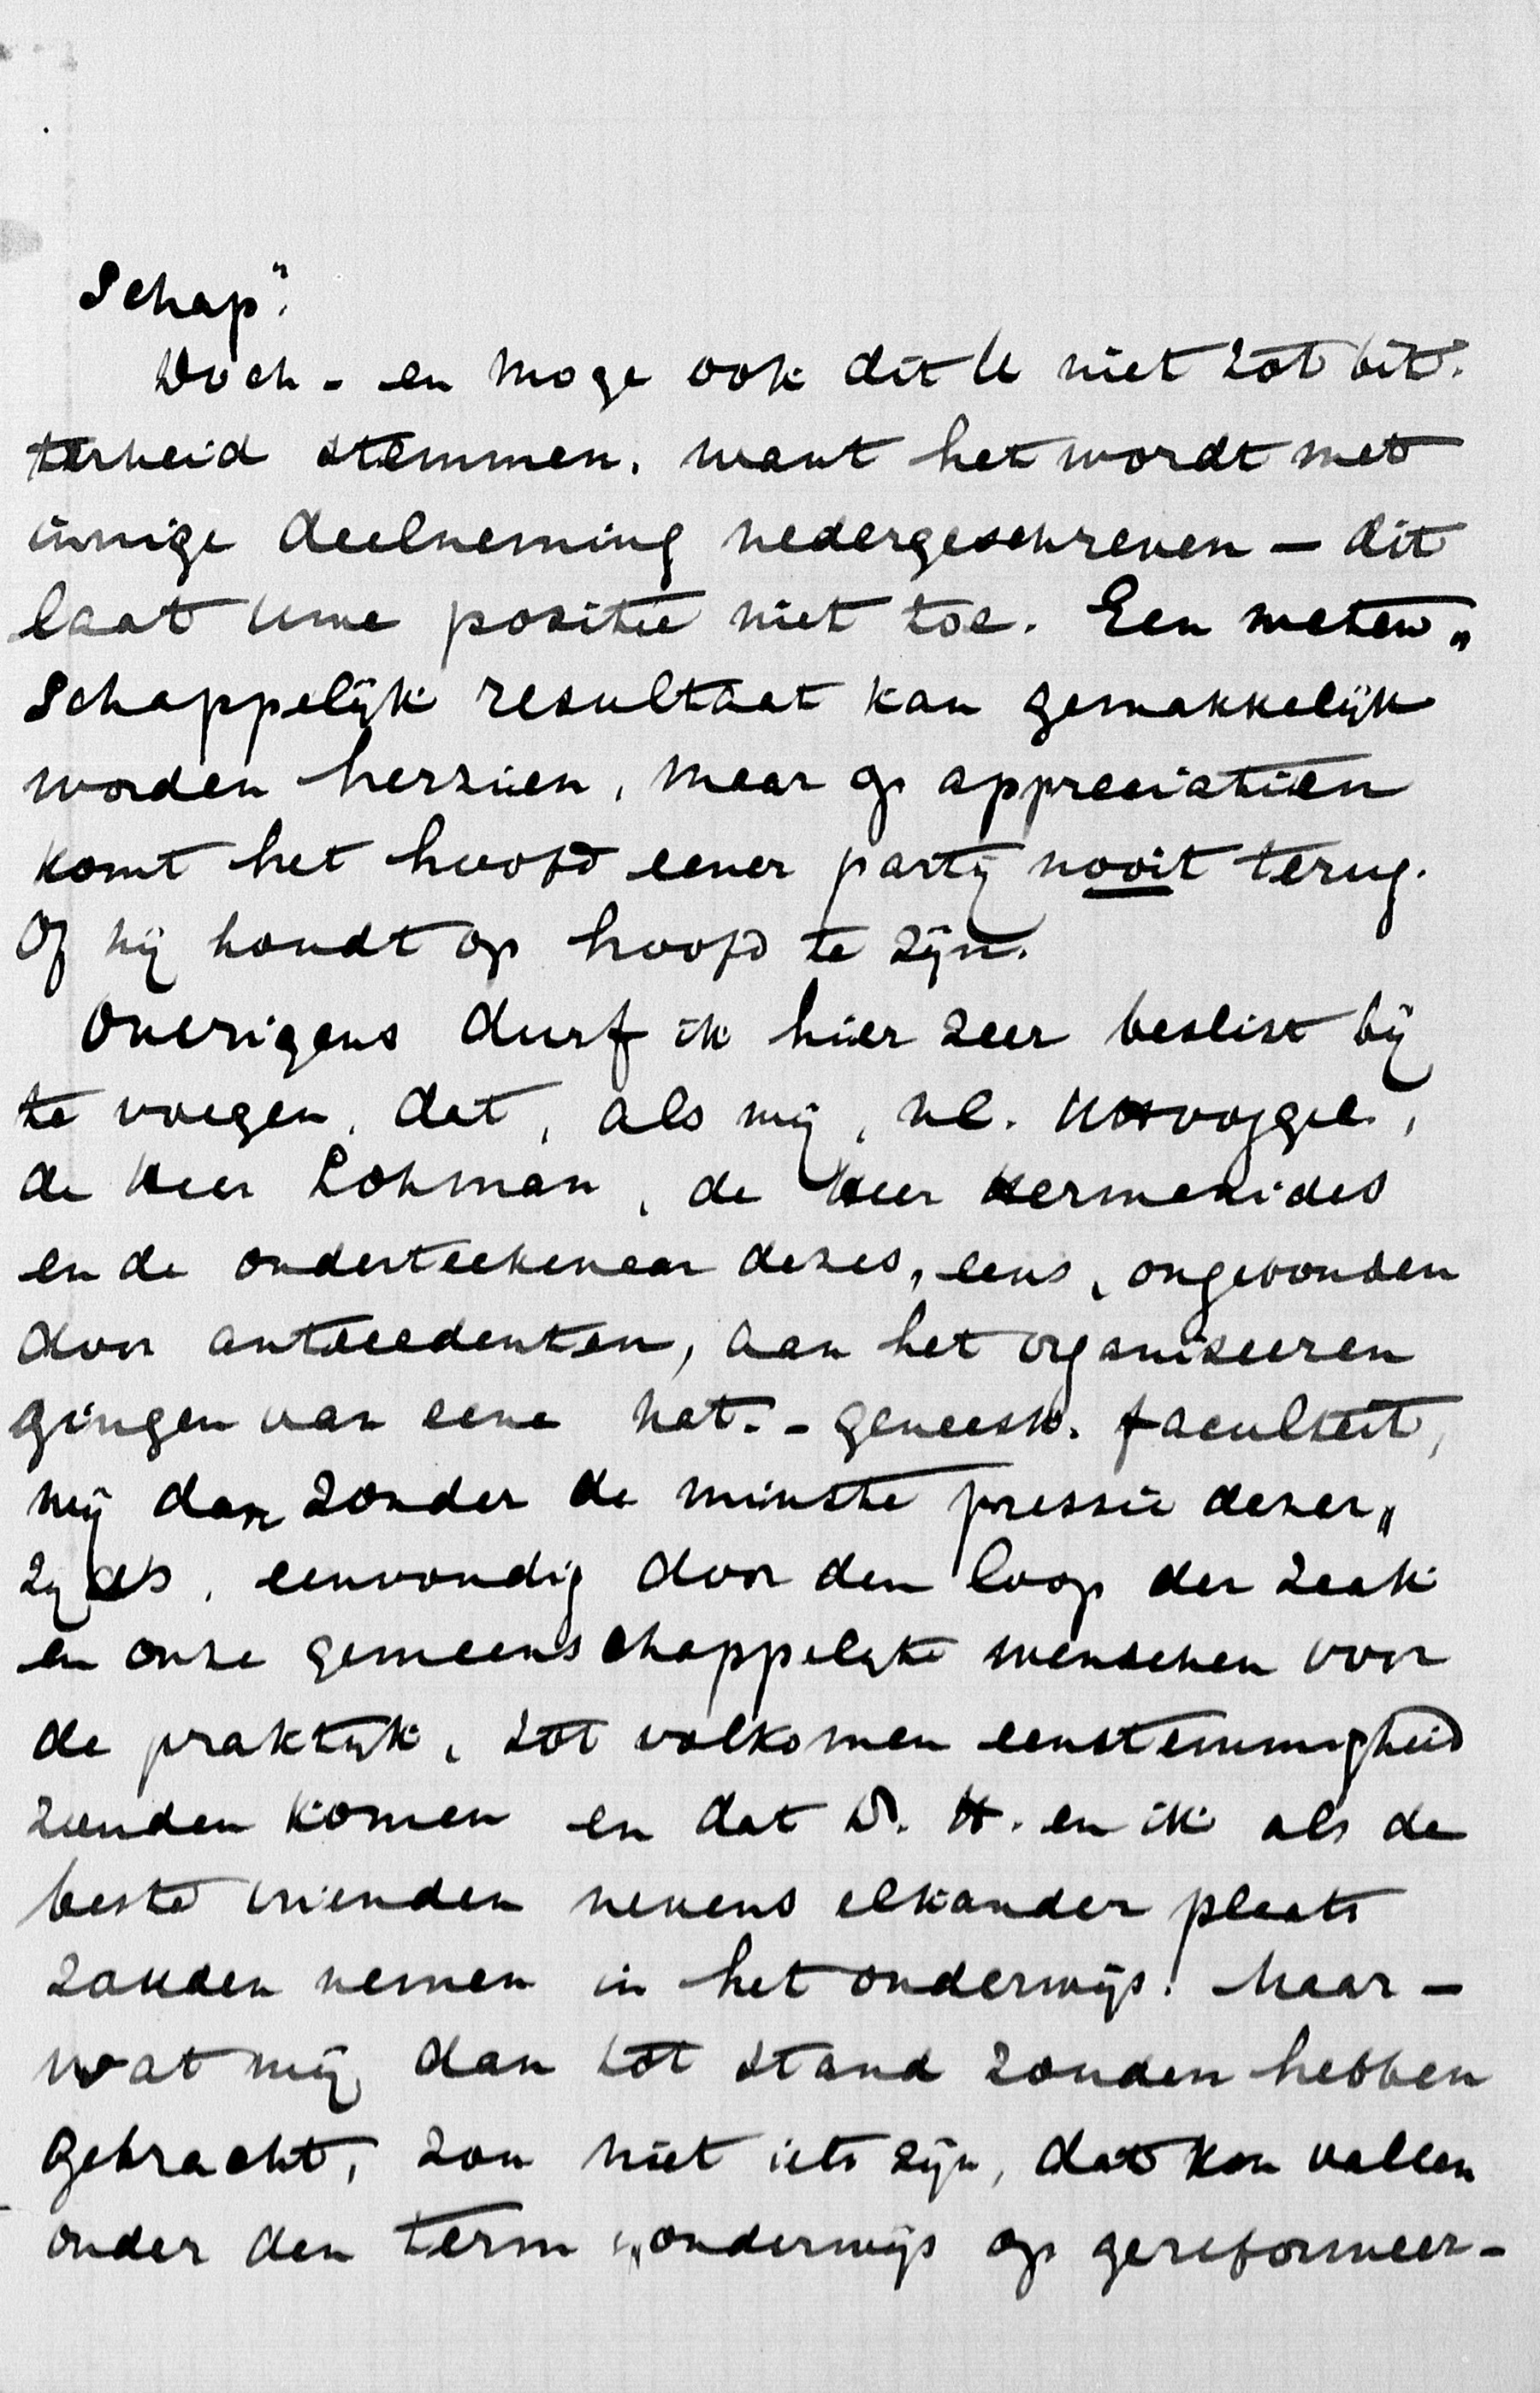 schap".
Doch - en moge ook dit U niet tot bit-
terheid stemmen, want het wordt met
innige deelneming nedergeschreven — dit
laat Uwe positie niet toe. Een weten„
schappelijk resultaat kan gemakkelijk
worden herzien, maar op appreciatiën
komt het hoofd eener partij nooit terug.
Of hij houdt op hoofd te zijn.
Overigens durf ik hier zeer beslist bij
te voegen, dat, als wij, nl.
de Heer Lohman, de Heer Hermanides
en de onderteekenaar dezes, eens, ongebonden
door antecedenten, aan het organiseeren
gingen van eene nat.-geneesk. faculteit,
wij dan zonder de minste pressie dezer„
zijds, eenvoudig door den loop der zaak
en onze gemeenschappelijke wenschen voor
de praktijk, tot volkomen eenstemmigheid
zouden komen en dat D. H. en ik als de
beste vrienden nevens elkander plaats
zouden nemen in het onderwijs. Maar —
wat wij dan tot stand zouden hebben
gebracht, zou niet iets zijn, dat kon vallen
onder den term „onderwijs op gereformeer-